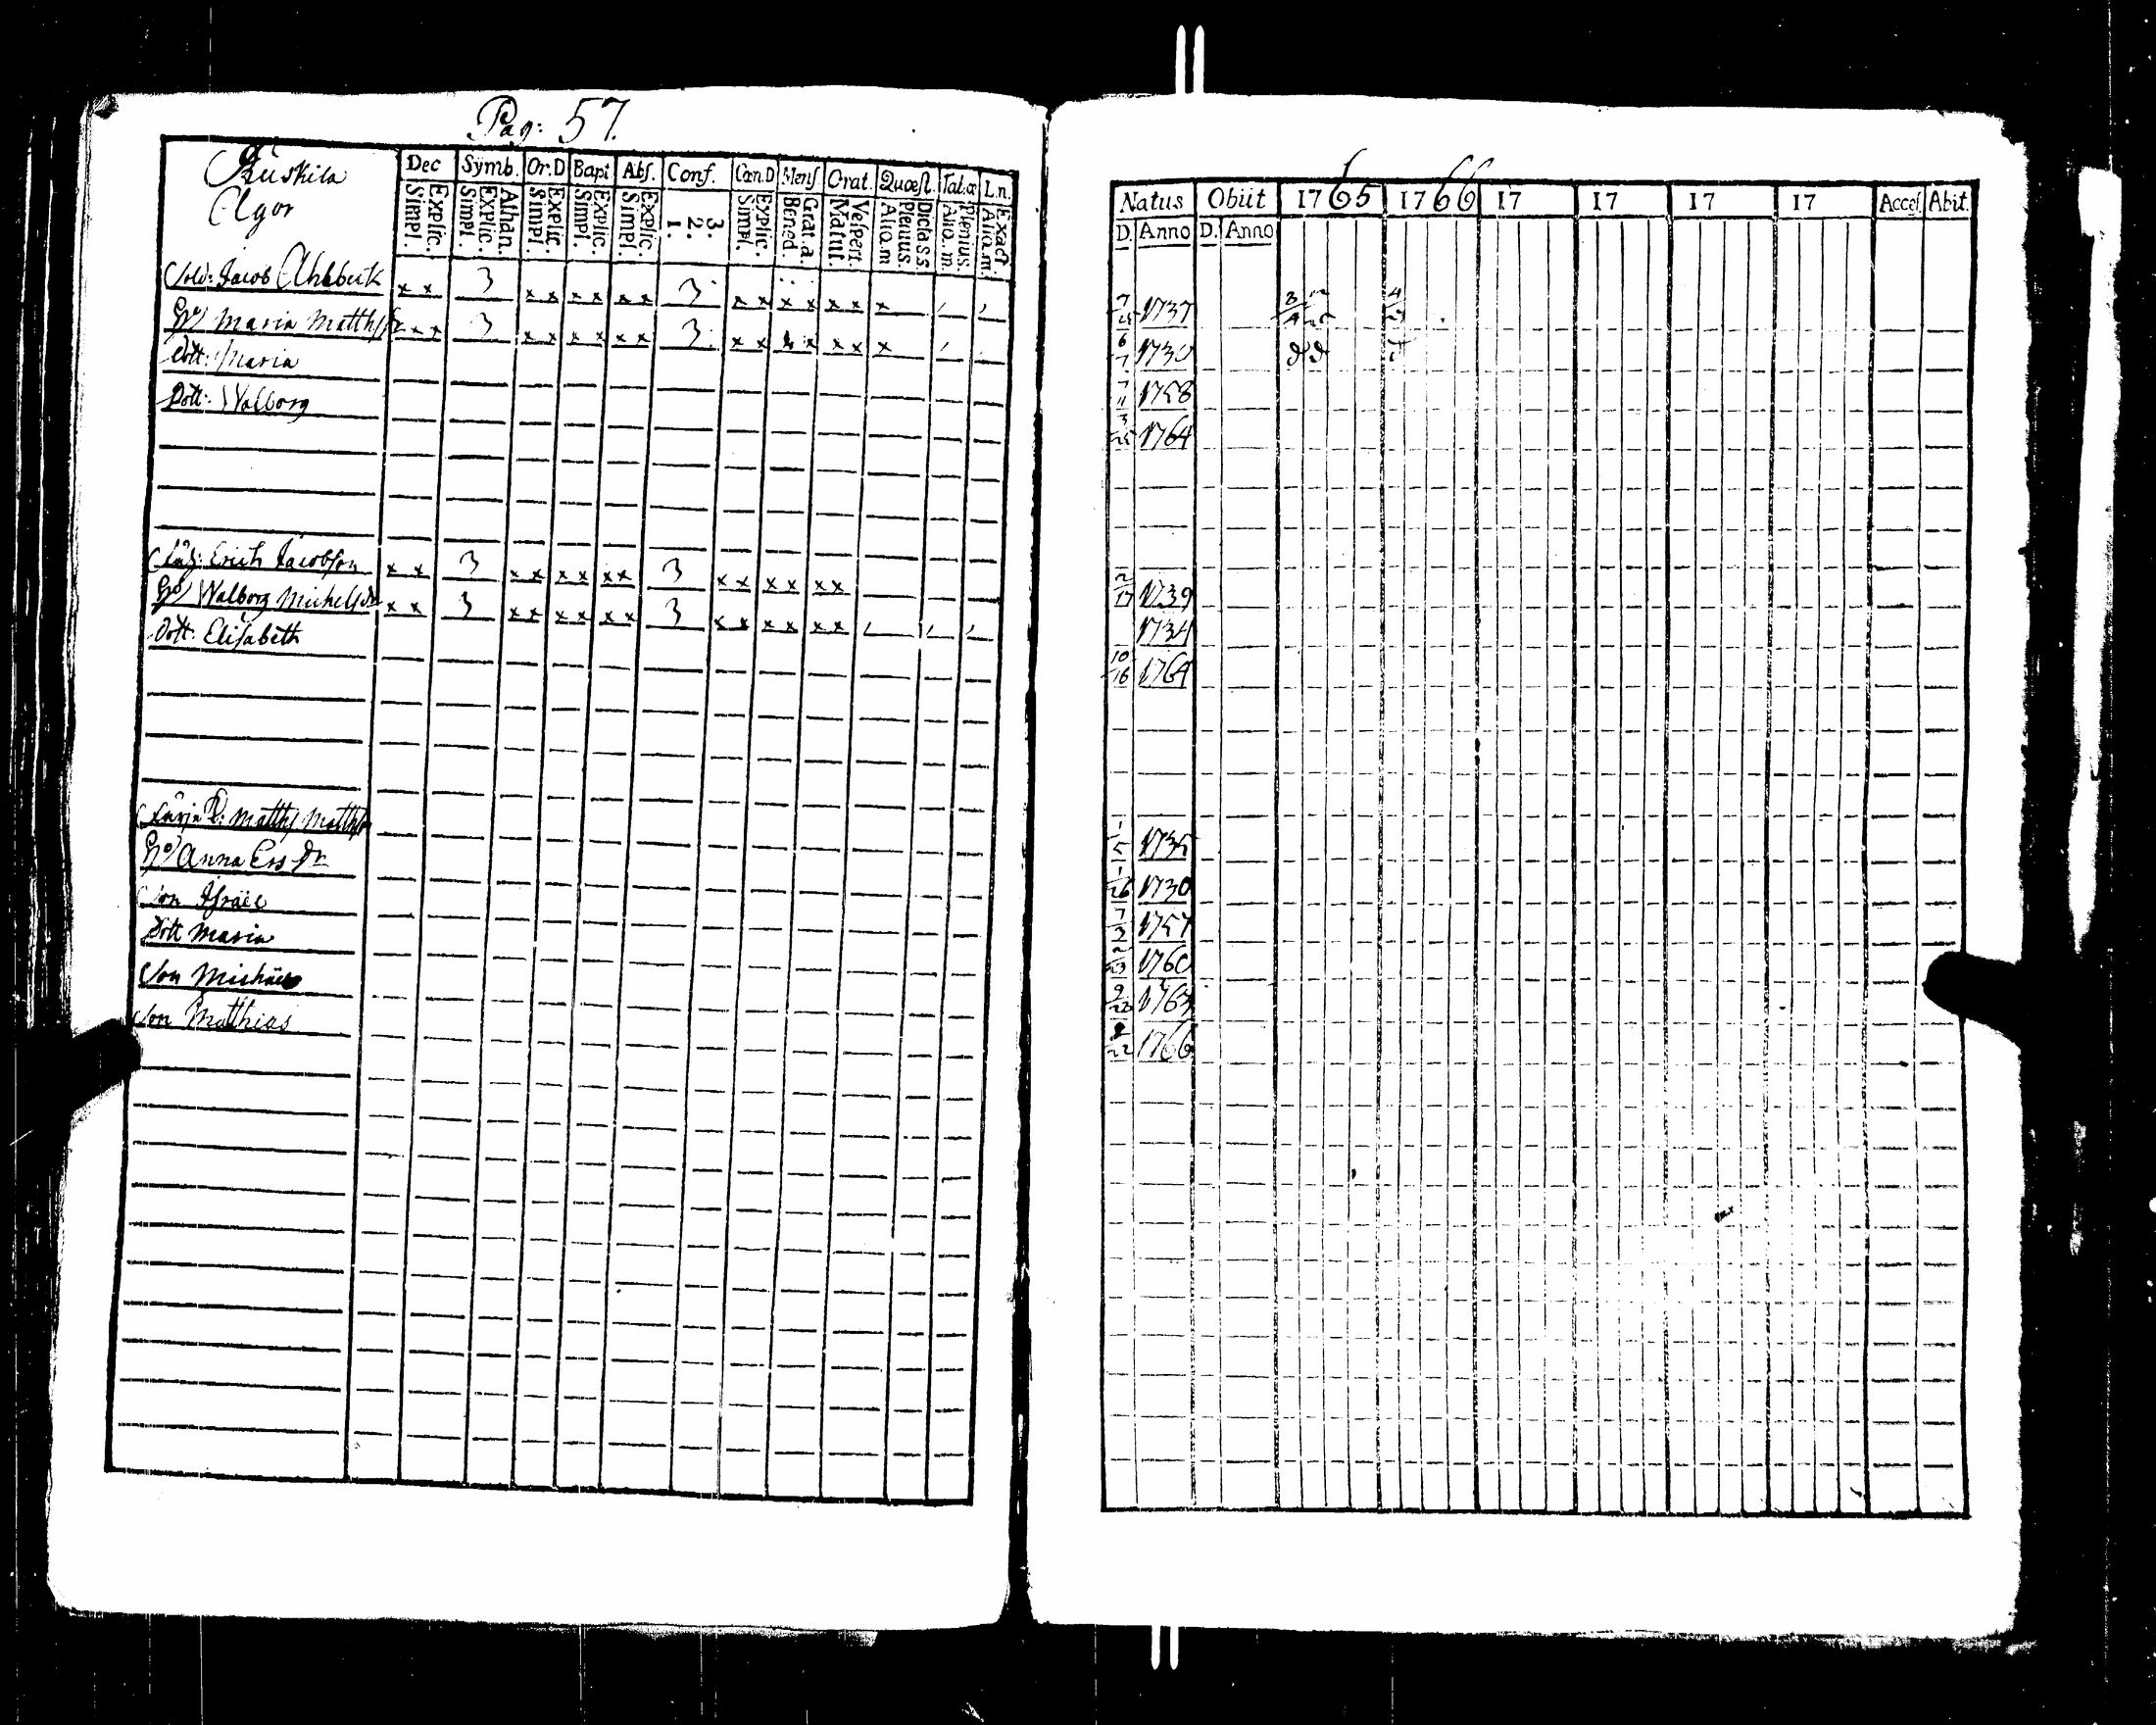 Pag: 57.
Ruskila
Ägor
Dec Symb. Or.D Bapt Abs. Conf. Cœn.D Mens Orat. Quæst. Tab.œ L.n.
Simpl. Explic. Simpl. Explic. Athan. Simpl. Explic. Simpl. Explic. Simpl. Explic. 1. 2. 3. Simpl. Explic. Bened. Grat.a. Matut. Vespert. Aliq.m Plenius. Dicta s.s. Aliq.m. Plenius. Aliq.m. Exact.
Sold: Jacob Ahlbeck x x 3 x x x x x x 3 x x x x x x x
Maria Matths x x 3 x x x x x x 3 x x x x x x x
Dott: Maria
Dott: Walborg
Erich Jacobson x x 3 x x x x x x 3 x x x x x x
Walborg Michelsdr x x 3 x x x x x x 3 x x x x x x
Dott: Elisabeth
Matths Matths
Anna Ersdr
Son Israel
Dott Maria
Son Michael
Son Matthias
Natus Obiit 1765 1766 17 17 17 17 Acces. Abit.
D. Anno D. Anno
1737
6/7 1730
7/11 1758
3/25 1764
2/17 1739
1734
10/16 1764
1/5 1735
1/26 1730
7/3 1757
1760
9/28 1763
22 1766